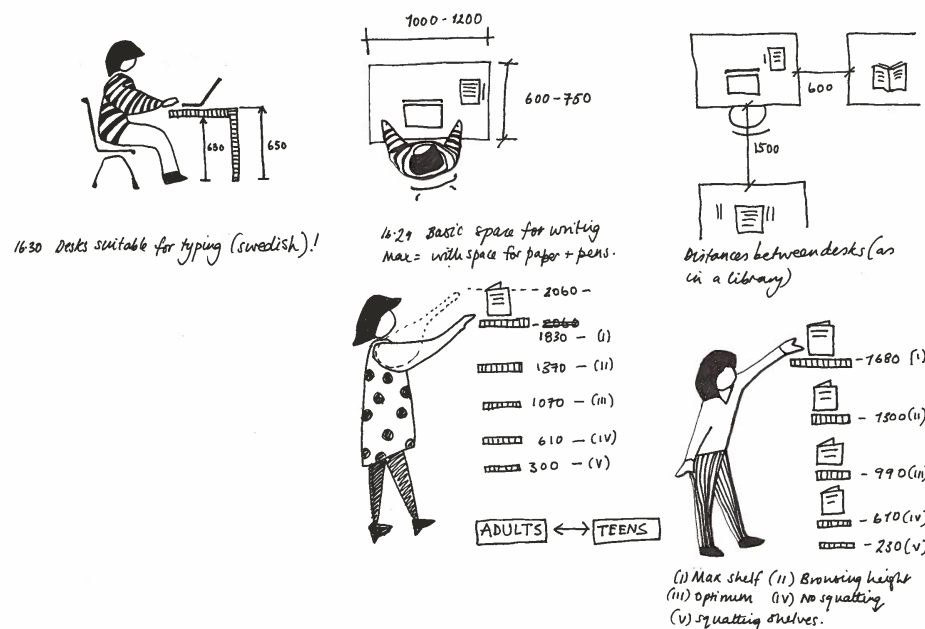 1000-1200
600-750
600
1500
630
650
16.30 Desks suitable for typing (swedish).!
16.29 Basic space for writing
Max = with space for paper + pens.
Distances between desks (as
in a library)
2060 -
- 2060
1830 - (i)
1370 - (ii)
1070 - (iii)
610 - (iv)
300 - (v)
ADULTS ↔ TEENS
- 1680 (i)
- 1300 (ii)
- 990 (iii)
- 610 (iv)
- 230 (v)
(i) Max shelf (ii) Browsing height
(iii) Optimum (iv) No squatting
(v) squatting shelves.